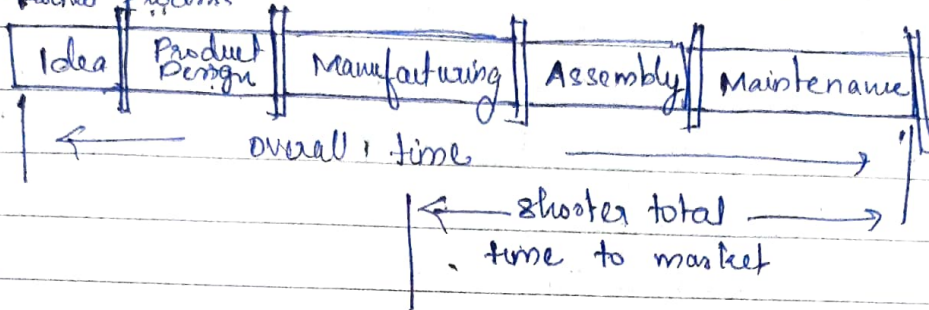 Idea
Product
Design
Manufacturing
Assembly
Maintenance
overall time
shooter total
time to market